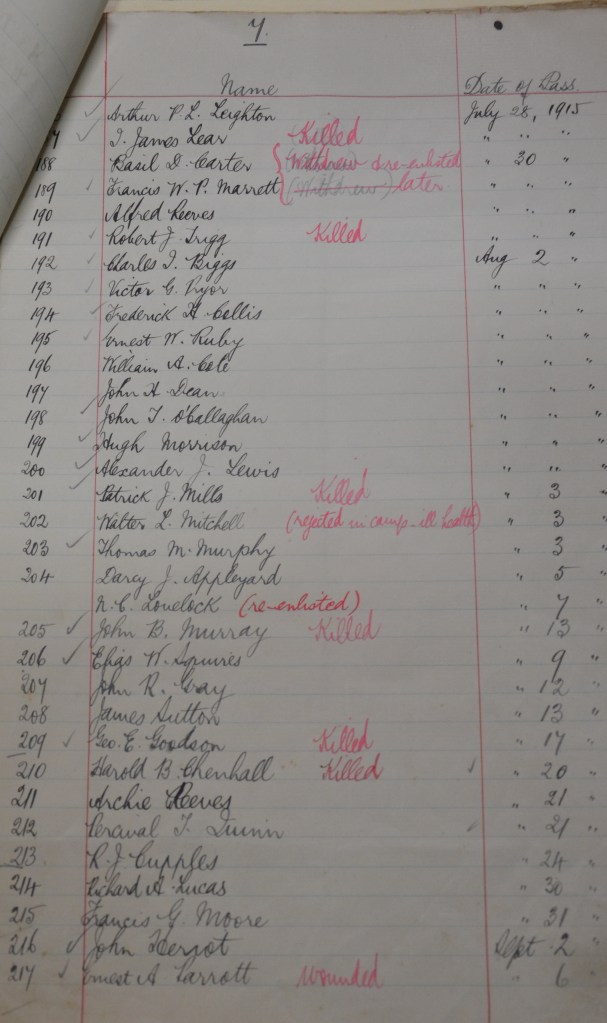 7.
Name Date of Pass.
Arthur P. L. Leighton July 28, 1915
J. James Lear Killed " " "
188 Basil D. Carter (Withdrew & re-enlisted " 30 "
189 Francis W. P. Marrett (Withdrew) later. " " "
190 Alfred Reeves " " "
191 Robert J. Trigg Killed " " "
192 Charles J. Biggs Aug 2 "
193 Victor G. Pryor " " "
194 Frederick H. Collis " " "
195 Ernest W. Ruby " " "
196 William A. Cole " " "
197 John H. Dean " " "
198 John T. O'Callaghan " " "
199 Hugh Morrison " " "
200 Alexander J. Lewis " " "
201 Patrick J. Mills Killed " 3 "
202 Walter L. Mitchell (rejected in camp - ill health) " 3 "
203 Thomas M. Murphy " 3 "
204 Darcy J. Appleyard " 5 "
N. C. Lovelock (re-enlisted) " 7 "
205 John B. Murray Killed " 13 "
206 Elias W. Squires " 9 "
207 John R. Gray " 12 "
208 James Sutton " 13 "
209 Geo. E. Goodson Killed " 17 "
210 Harold B. Chenhall Killed " 20 "
211 Archie Reeves " 21 "
212 Percival T. Quinn " 21 "
213 R. J. Cupples " 24 "
214 Richard A. Lucas " 30 "
215 Francis G. Moore " 31 "
216 John Heriot Sept. 2 "
217 Ernest A Parrott Wounded " 6 "